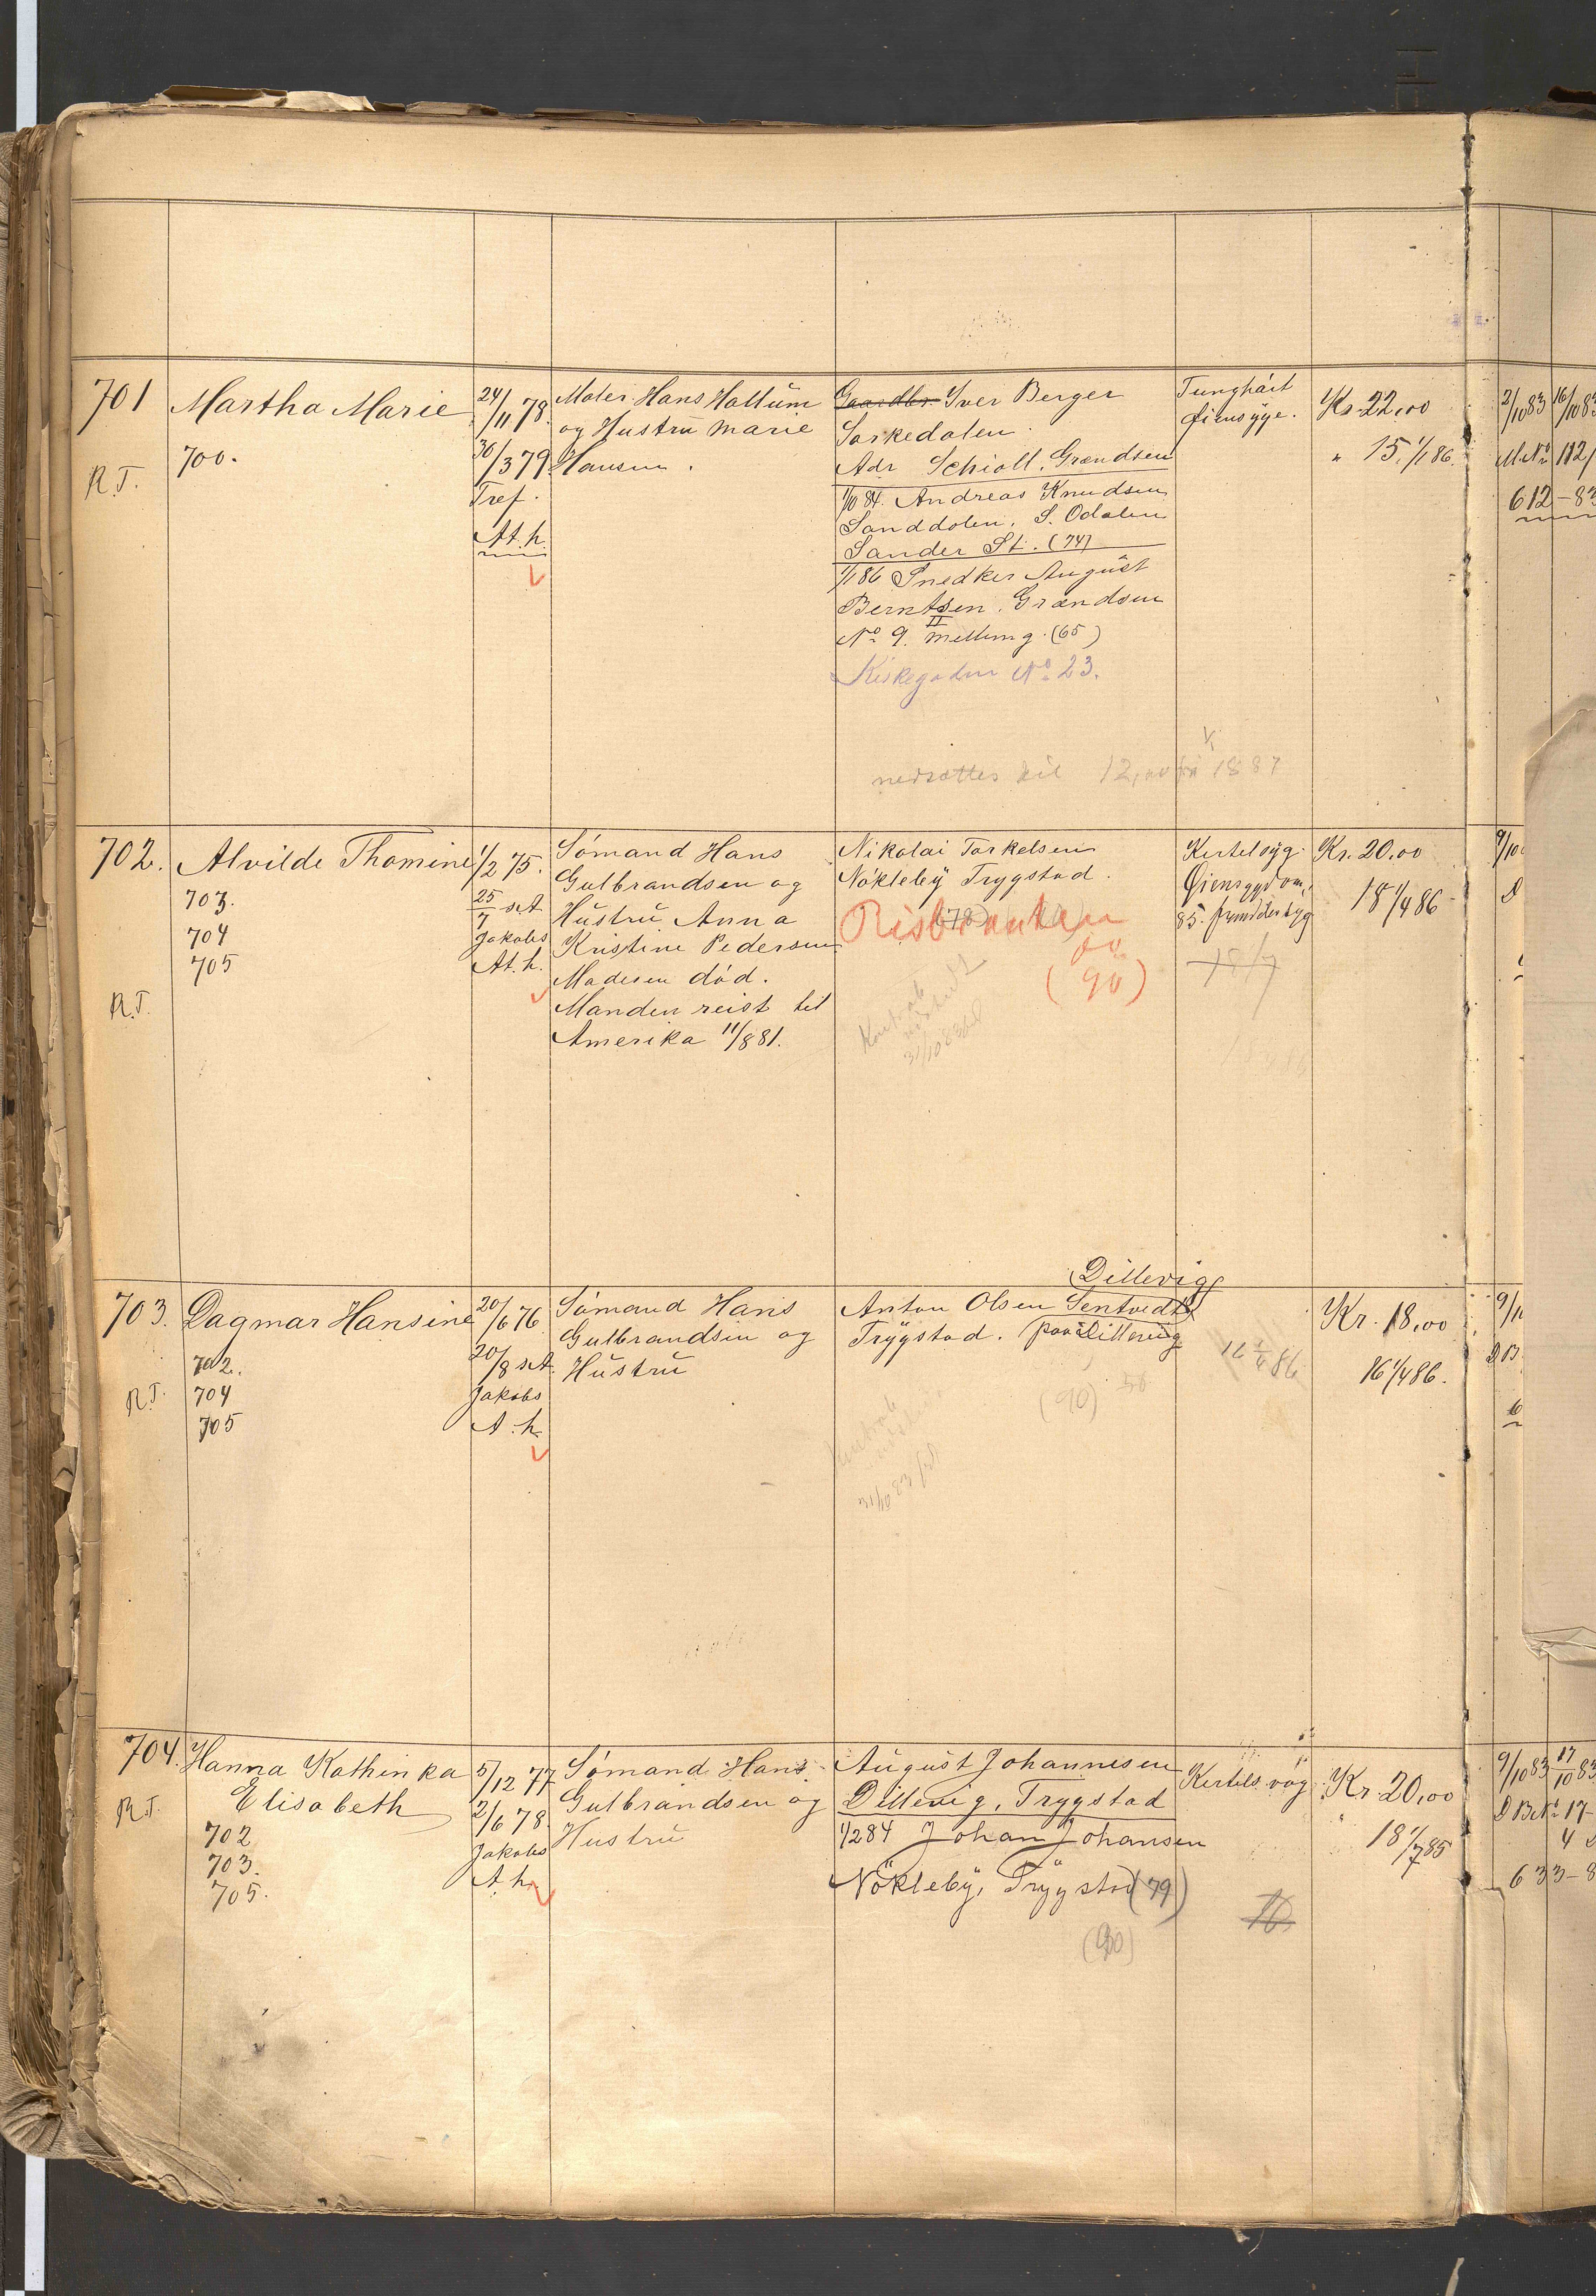 701
Martha Marie
700.
R.T.
24/11 78.
30/3 79.
Tref.
At. h.
Maler Hans Hallum
og Hustru Marie
Hansen.
Gaardbr. Iver Berger
Sørkedalen.
Adr Schiøll. Grændsen
1/10 84. Andreas Knudsen
Sanddalen. S. Odalen
Sander St. (74)
1/1 86 Snedker August
Berntsen. Grændsen
No 9. II mellemg. (65)
Kirkegaden No 23.
nedsættes til 12,00 fra 1/1 1887
Tunghørt
øiensyge.
Kr. 22,00
" 15, 1/1 86.
2/10 83
16/10 83
612-83
702.
Alvilde Thomine
703.
704
705
R.T.
1/2 75.
25/7 s.A
Jakobs
At. h.
Sømand Hans
Gulbrandsen og
Hustru Anna
Kristine Pedersen
Moderen død.
Manden reist til
Amerika 11/8 81.
Nikolai Torkelsen
Nökleby Trygstad.
(78)
(90)
Kontrakt
31/10 83
Kertelsyg.
Øiensygdom,
Kr. 20,00
18 1/4 86
703.
Dagmar Hansine
702.
704
705
R.T.
20/6 76
20/8 s.A.
Jakobs
A. h.
Sømand Hans
Gulbrandsen og
Hustru
Dillevig
Anton Olsen Sentvedt
Trygstad. paa Dillevig
(90)
Kontrakt
31/10 83
16 1/4 86
Kr. 18,00
16 1/4 86.
704.
Hanna Kathinka
Elisabeth
702
703.
705.
R.T.
5/12 77
2/6 78.
Jakobs
A. h.
Sømand Hans
Gulbrandsen og
Hustru
August Johannesen
Dillevig, Trygstad
1/2 84 Johan Johansen
Nökleby, Trygstad (79)
(90)
Kertels. våg.
16
Kr. 20,00
18 1/7 85
9/10 83
17/10 83
633-8